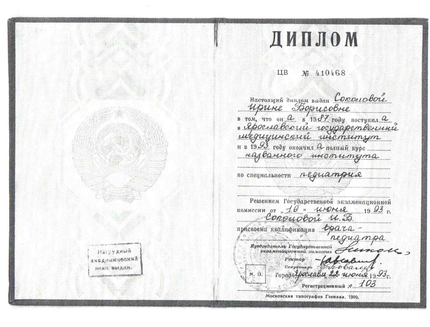 ДИПЛОМ
ЦВ № 410468
Настоящий диплом выдан Соколовой
Ирине Борисовне
в том, что он а в 1987 году поступил а
в Ярославский государственный
медицинский институт
и в 1993 году окончил а полный курс
названного института
по специальности педиатрия
Решением Государственной экзаменационной
комиссии от 16 июня 1993 г.
Соколовой И.Б.
присвоена квалификация врача-
педиатра
Председатель Государственной
экзаменационной комиссии
Ректор
Секретарь
М. П.
Город Ярославль 22 июня 1993 г.
Регистрационный № 103
Московская типография Гознака. 1990.
Нагрудный
академический
знак выдан.